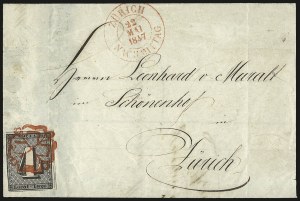 ZÜRICH
22
MAI
1847
NACHMITTAG
Herren Leonhard v Muralt
im Schönenhof
Zürich
4